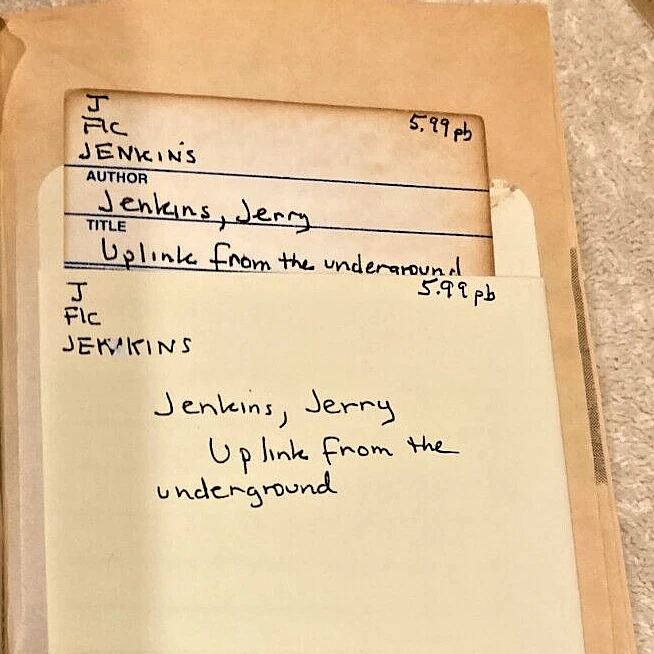 J
FIC
JENKINS
5.99 pb
AUTHOR
Jenkins, Jerry
TITLE
Uplink from the underground
J
FIC
JENKINS
5.99 pb
Jenkins, Jerry
Uplink from the
underground